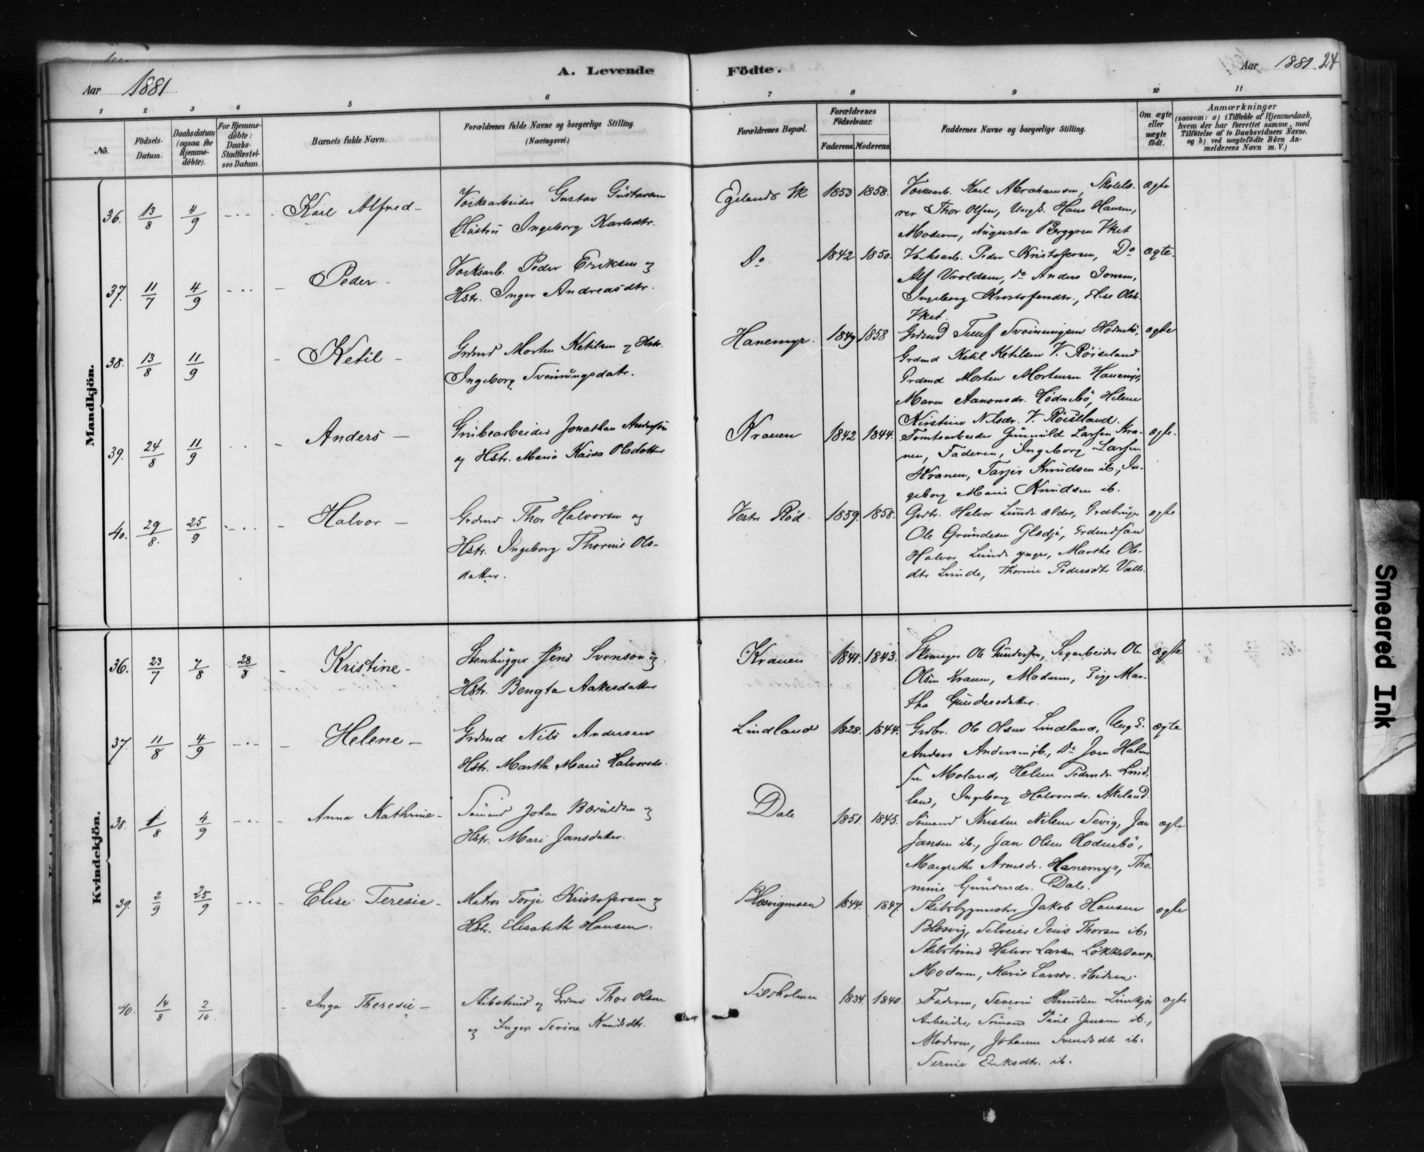 Aar 1881
A. Levende
Födte.
Aar 1881. 24
1 2 3 4 5 6 7 8 8 9 10 11
No.
Födsels-
Datum.
Daabsdatum
(ogsaa for
Hjemme-
döbte).
For Hjemme-
döbte:
Daabs-
Stadfæstel-
ses Datum.
Barnets fulde Navn.
Forældrenes fulde Navne og borgerlige Stilling.
(Næringsvei.)
Forældrenes Bopæl.
Forældrenes
Födselsaar.
Faderens. Moderens.
Faddernes Navne og borgerlige Stilling.
Om ægte
eller
uægte
födt.
Anmærkninger
(saasom: a) i Tilfælde af Hjemmedaab,
hvem der har forrettet samme, med
Tilföielse af to Daabsvidners Navne,
og b) ved uægtefödte Börn An-
melderens Navn m. V.)
Mandkjön.
36. 13/8 4/9 Karl Alfred
Værksarbeider Gustav Gustavsen
Hustru Ingeborg Karlsdtr.
Egelands Vk 1853 1858.
Værksarb. Karl Abrahamsen, Skolelæ-
rer Thor Olsen, Ungk. Hans Hansen,
Moderen, Augusta Berggren Vket
ægte
37. 11/7 4/9 Peder
Værksarb. Peder Eriksen og
Hstr. Inger Andreasdtr.
Do 1842 1850.
Værksarb. Peder Kristofersen, Do
Alf Uroldsen, do Anders Jonsen,
Ingeborg Kristofersdtr., Else Olsdtr.
Vket.
ægte.
38. 13/8 11/9 Ketil
Grdmd Morten Ketilsen og Hstr.
Ingeborg Sveinungsdatr.
Hanemyr. 1849 1858
Grdmd Tellef Sveinungsen Hödnebö,
Grdmd Ketil Ketilsen V. Röiseland
Grdmd Morten Mortensen Hanemyr,
Maren Aanonsdr. Hödnebö, Helene
Kirstine Nilsdr. V. Röiseland.
ægte
39. 24/8 11/9 Anders
Grubearbeider Jonathan
og Hstr. Maria Kaisa Olsdatter
Kranen 1842 1844.
Tomtearbeider Gunnuld Larsen Kra-
nen, Faderen, Ingeborg Larsen
Kranen, Tarjer Knudsen ib., In-
geborg Marie Knudsen ib.
ægte.
40. 29/8. 25/9 Halvor
Grdmd Thor Halvorsen og
Hstr. Ingeborg Thomine Ols-
datter.
Vestre Röd. 1859 1858.
Grbr. Halvor Lunde ældre, Grdbruger
Ole Gundersen Glidje, Grdmdsön
Halvor Lunde yngre, Marthe Ols-
dtr Lunde, Thomine Pedersdtr Valle.
ægte
Kvindekjön.
36. 23/7 7/8 28/8 Kristine
Stenhugger Jens Svenson og
Hstr. Bengta Aakesdatter
Kranen 1841. 1843.
Ole Gundersen, Sagarbeider Ole
Olsen Kranen, Moderen, Pige Mar-
tha Gundersdatter.
ægte
37. 11/8 4/9 Helene
Grdmd Nils Andersen
Hstr. Marthe Marie Halvorsdr.
Lindland 1828. 1844.
Grbr. Ole Olsen Lindland, Ungk.
Anders Andersen ib., Do Jon Halvor-
sen Moland, Helene Pedersdr Lind-
land, Ingeborg Halvorsdr. Akeland
ægte
38. 1/8 4/9 Anna Kathrine
Sömand Johan Bæruldsen og
Hstr. Mari Jansdatter.
Dale 1851 1845.
Sömand Kristen Nilsen Sevig, Jan
Jansen ib., Jan Olsen Hödnebö,
Margrethe Arnesdr. Hanemyr, Tho-
mine Gundersdr. Dale.
ægte
39. 2/9 25/9 Elise Teresie
Matros Terje Kristofersen og
Hstr. Elisabeth Hansen.
1844. 1847
Skibsbygmester Jakob Hansen
Blosvig, Selveier Jens Thorsen ib.,
Skibstömmd Halvor Larsen
Moderen, Maria Larsdr. Heien.
ægte
40. 14/8 2/10 Inga Theresie
og Grdmd Thor Olsen
og Inger Serine Knudsdtr.
1834 1840.
Faderen, Severin Knudsen
Arbeider, Sömand Paul Jensen ib.,
Moderen, Johanne Svendsdtr ib.
Serine Eriksdtr. ib.
ægte
Smeared Ink